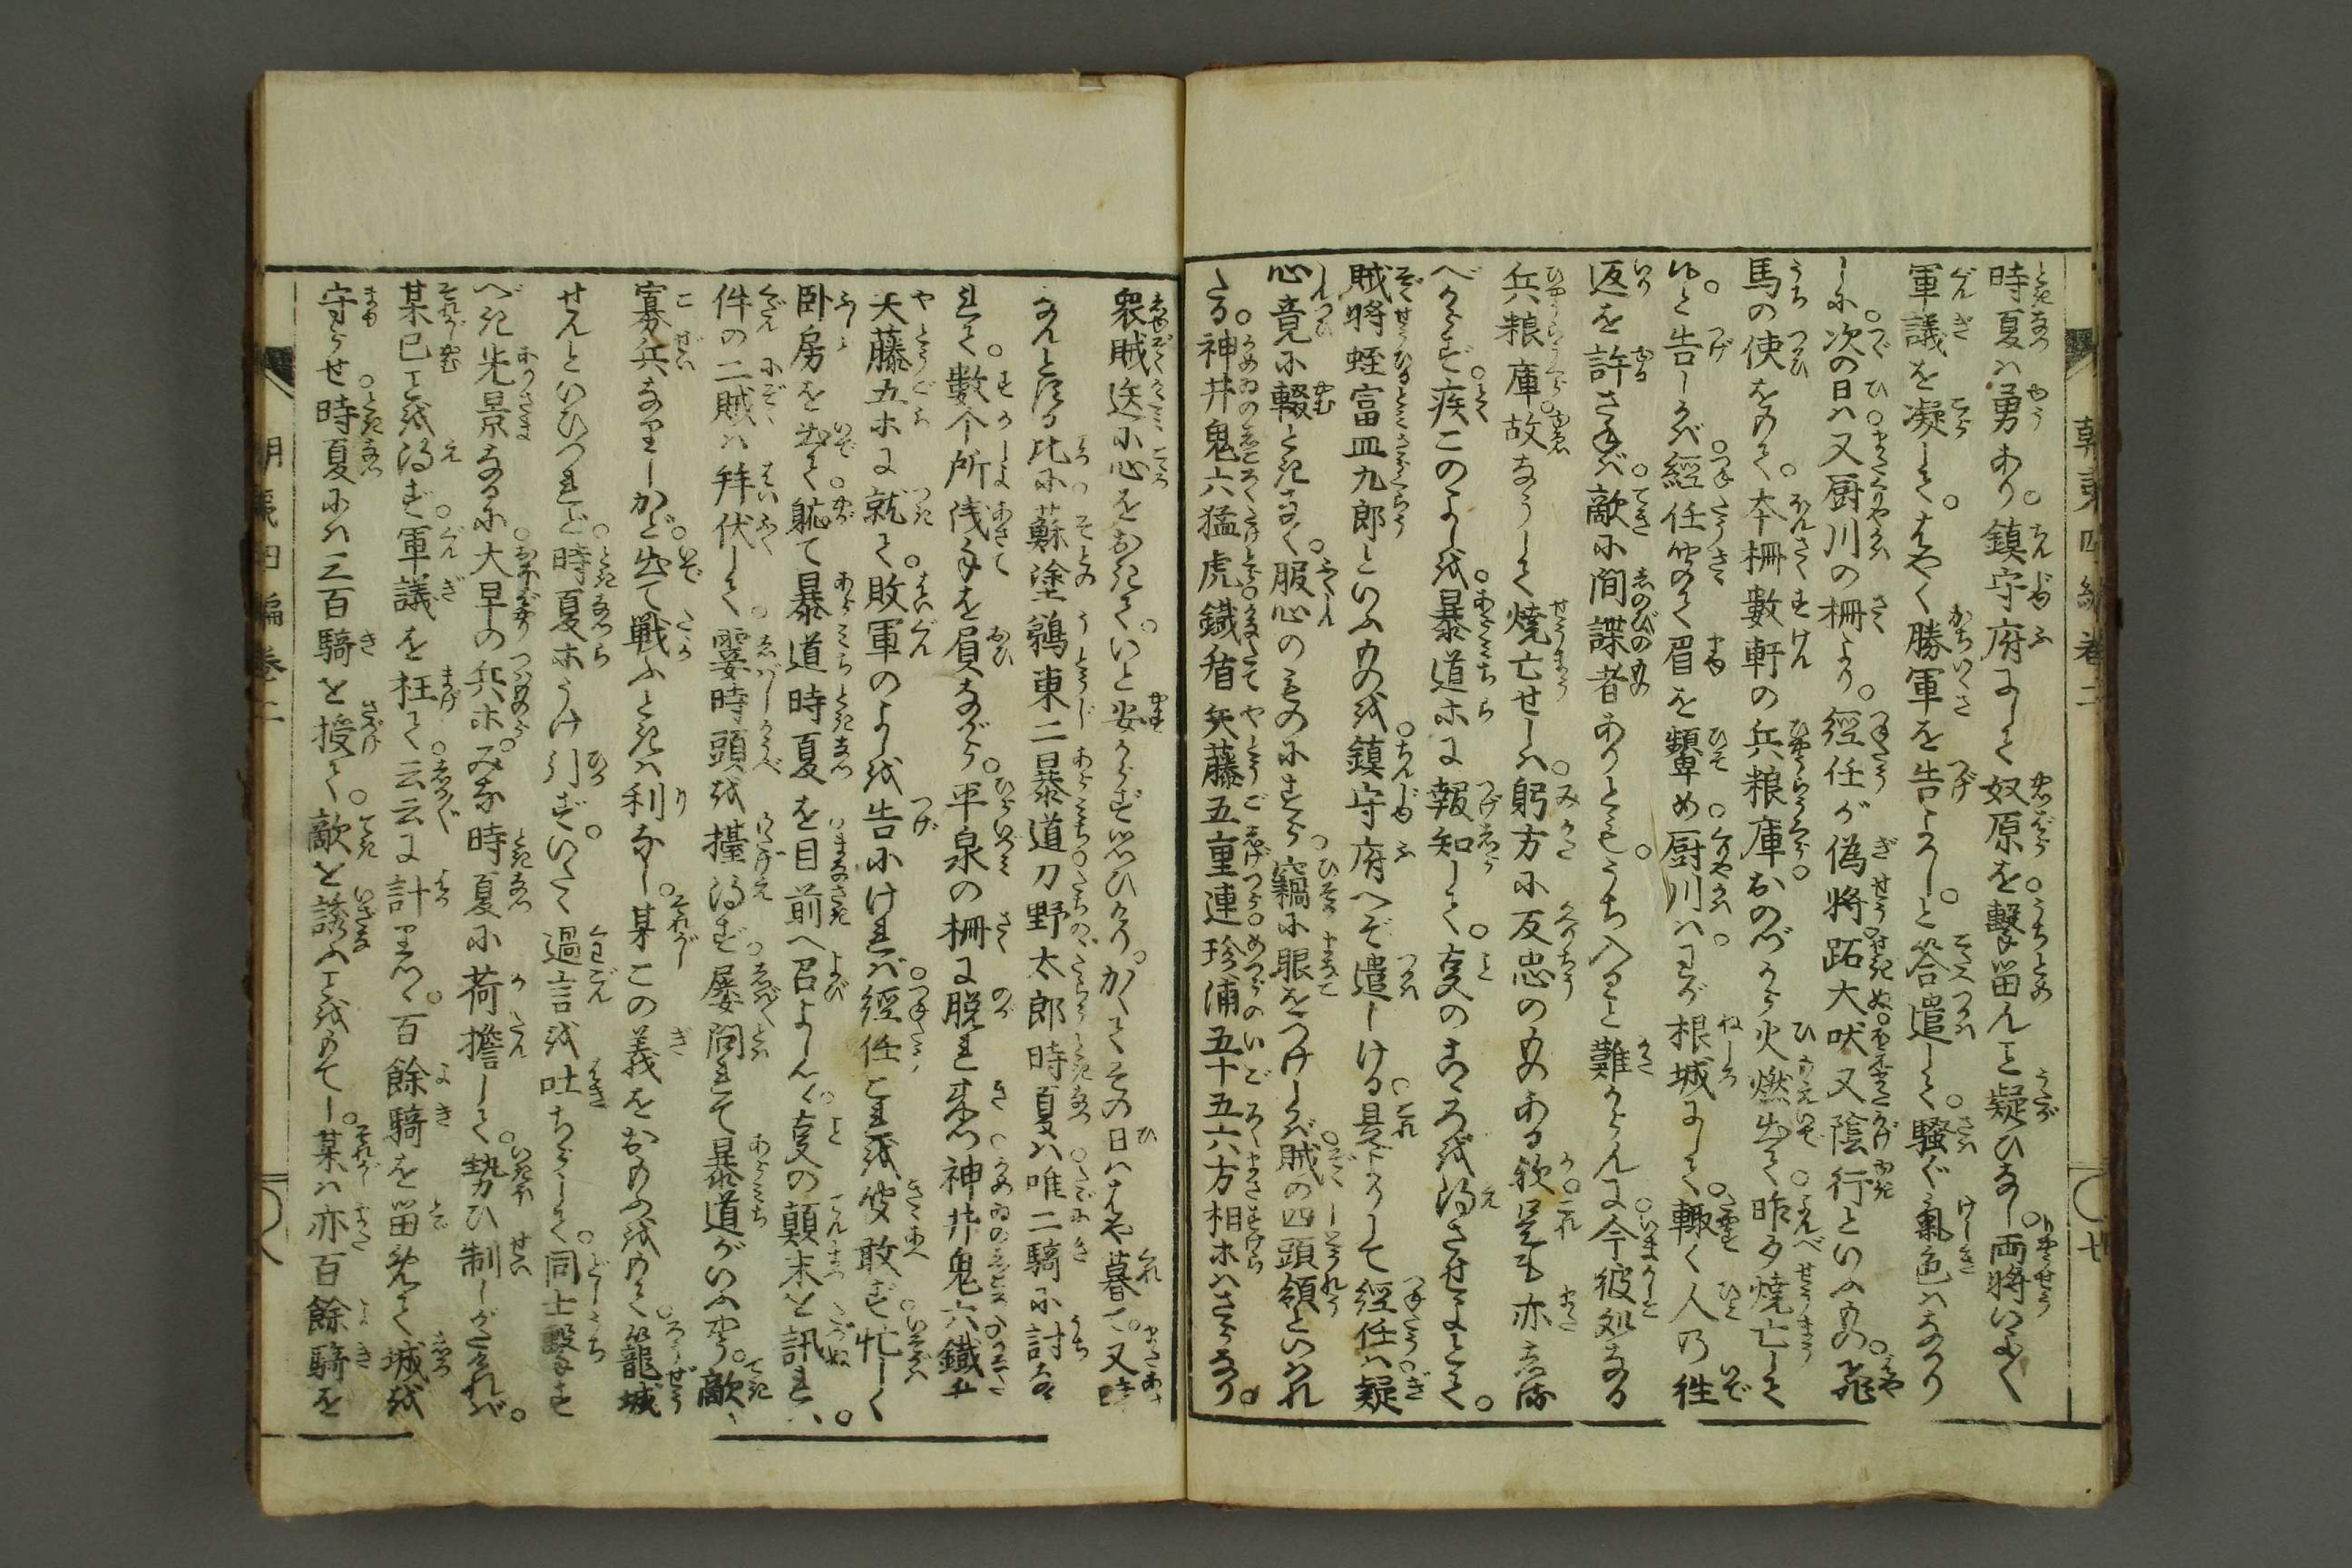 時夏ハ勇あり。鎮守府にして奴原を。撃留んこと疑ひなし。両將いよく
軍議を凝して。はやく勝軍を告よかし。と答遣して。騒ぐ氣色ハなかり
しに。次の日ハ。又厨川の柵より。經任が偽將。跖大吠。又陰行といふもの。飛
馬の使をもて。本柵數軒の兵粮庫。おのづから火燃出て。昨夕燒亡して
候。と告しかバ。經任聞て眉を顰め。厨川ハ。わが根城にして。輙く人の徃
返を許さねバ。敵に間諜者ありとも。うち入ること難からんに。今彼処なる
兵粮庫。故なうして燒亡せしハ。躬方に反忠のものある歟。是も亦しる
べからず。疾このよしを。暴道ホに報知して。事のこゝろを得させよとて。
賊將蛭富皿九郎といふものを。鎮守府へぞ遣しける。是よりして經任ハ。疑
心竟に輟ときなく。服心のものにすら。竊に眼をつけしかバ。賊の四頭領といはれ
たる。神井鬼六猛虎。鐵盾矢藤五重連。珍浦五十五六方相ホハさらなり。
衆賊迭に心をおきて。いと安からず思ひけり。かくてその日ハはや暮て。又時
なんとする比に。蘇塗鵜東二暴道。刀野太郎時夏ハ。唯二騎に討な
されて。數个所淺手を肩ながら。平泉の柵に脱れ来つ。神井鬼六鐵五
矢藤五ホに就て。敗軍のよしを告にけれバ。經任これを聞敢ず。忙しく
臥房を出て。軈て暴道時夏を目前へ召よして。事の顛末を訊れバ。
件の二賊ハ拜伏して。霎時頭を擡得ず。屡問れて暴道がいふやう。敵ハ
寡兵なりしかど。出て戰ふときハ利なし。某この義をおもふをもて。籠城
せんといひつれど。時夏ホうけ引ず。いたく過言を吐ちらして。同士擊もす
べき光景なるに。大早の兵ホ。みな時夏に荷擔して。勢ひ制しがたけれバ。
某已ことを得ず。軍議を枉て。云云に計りつゝ。百餘騎を留めて城を
守らせ。時夏にハ三百騎を授て。敵を誘ふことをもてし。某ハ亦百餘騎を